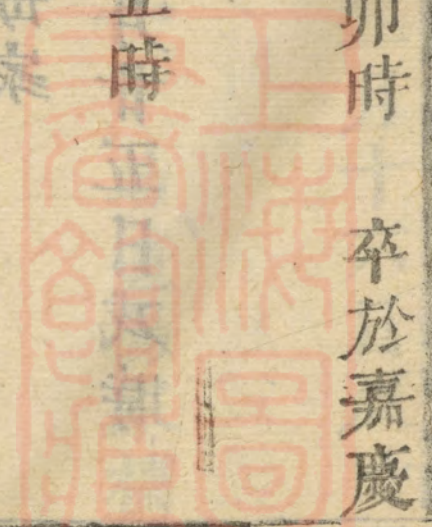 卯時 卒於嘉慶
時
上海圖書館藏